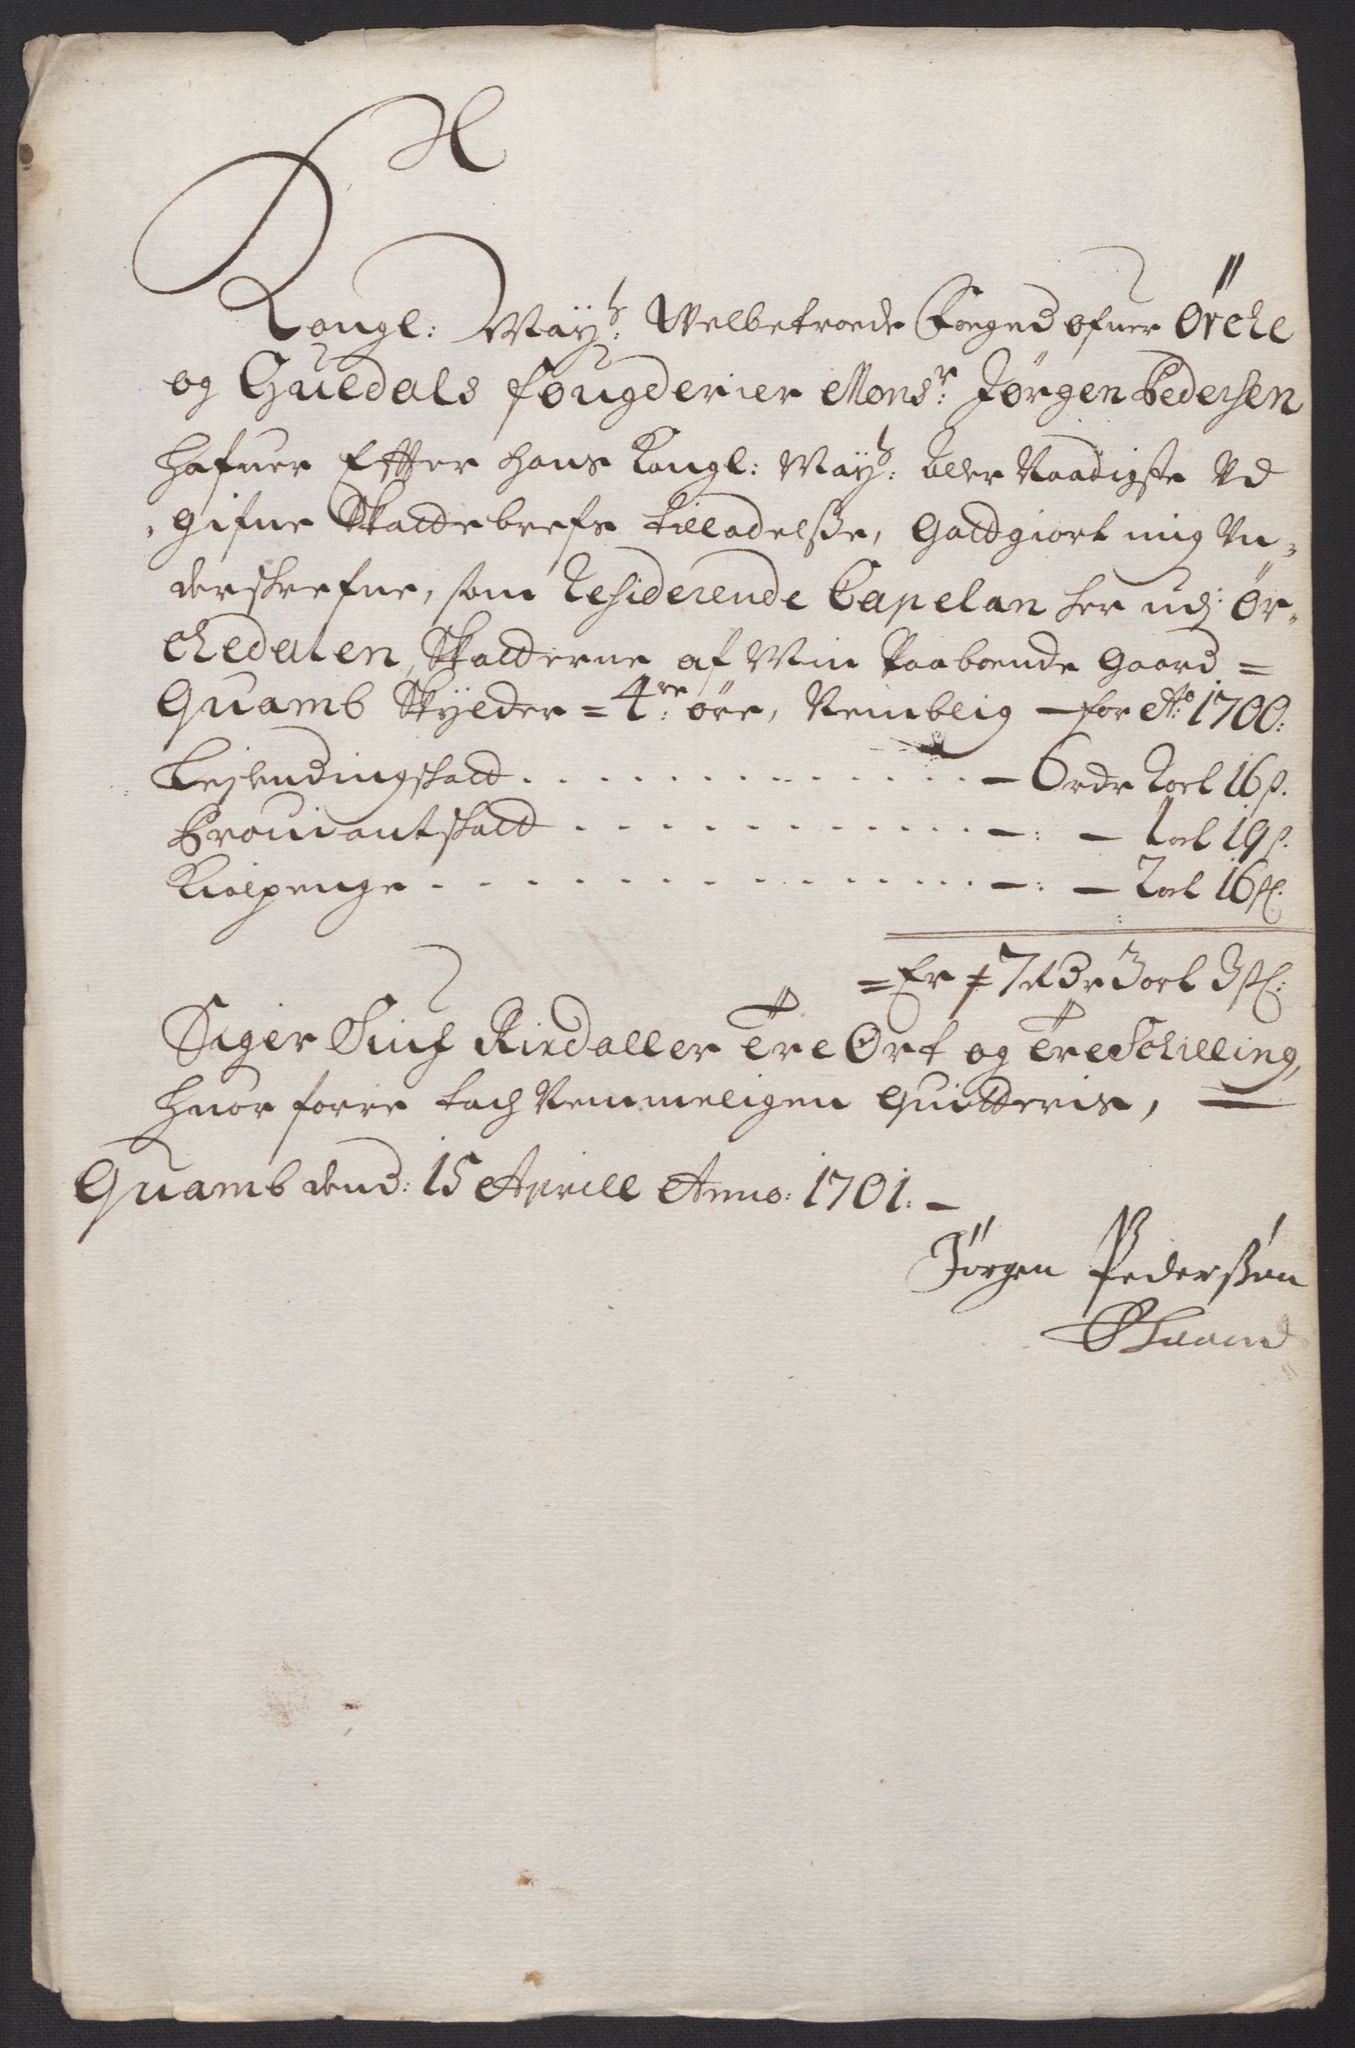 Kongl: Mayts: Welbetroede Foeged ofuer Örche
og Guldals fougderier Monsr: Jörgen Pedersen
hafuer Effter hans Kongl: Mayts: aller Naadigste Ud
gifne Skattebrefs tilladelsse, Gottgiort mig Un-
derskrefne, som Residerende Capelan her udj Ör-
chedalen, Skatterne af Min Paaboende Gaard =
Quamb Skylder = 4re: öre, Nemblig — for Ao: 1700:
Leilendingskatt . . . . . . . . . . . . . — 6 rdr 2 ort 16 s.
Proviantskatt . . . . . . . . . . . . — : — 1 ort 19 s.
Kiolpenge . . . . . . . . . . . . . . . — : — 2 ort 16 sk.
= Er 7 Rdr 3 ort 3 sk:
Siger Siuf Rixdaller Tre Ort og Tre Schilling,
huor forre tach Nemmeligen Quitteris, —
Quamb dend: 15 Aprill Anno: 1701. —
Jörgen Pederssøn